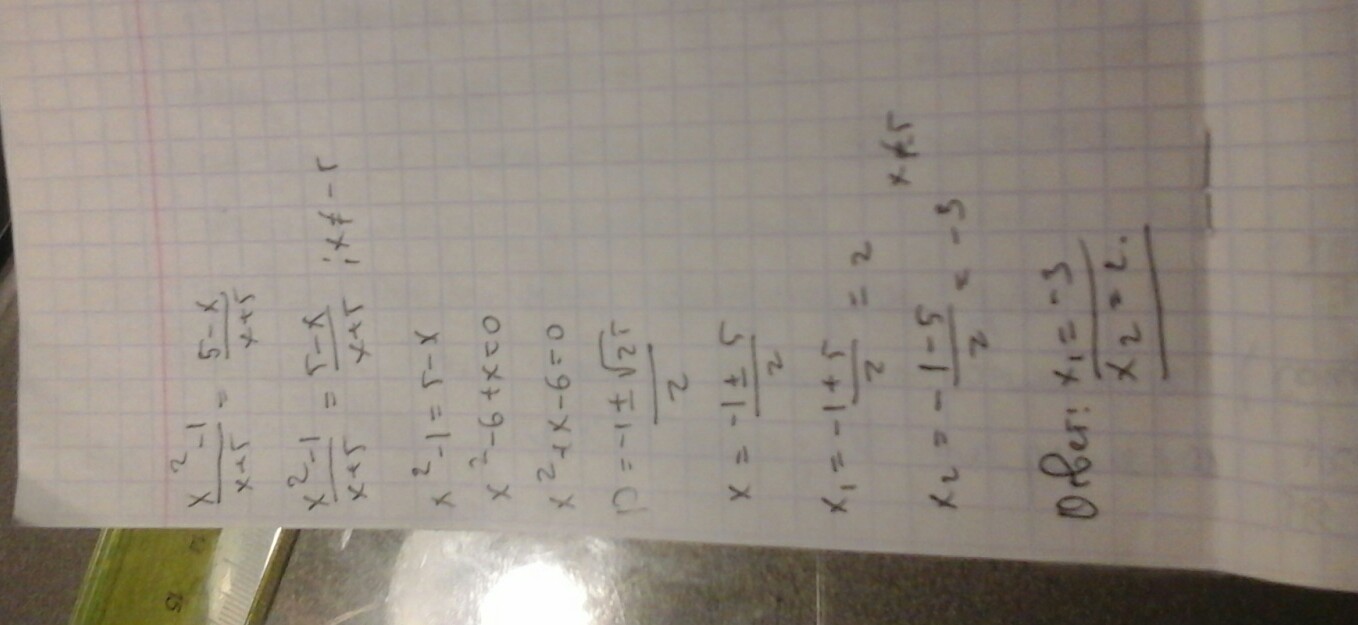 x²-1/x+5 = 5-x/x+5
x²-1/x+5 = 5-x/x+5 ; x≠-5
x²-1=5-x
x²-6+x=0
x²+x-6=0
D=-1±√25/2
x=-1±5/2
x₁=-1+5/2=2
x≠5
x₂=-1-5/2=-3
Ответ: x₁=-3
x₂=2.